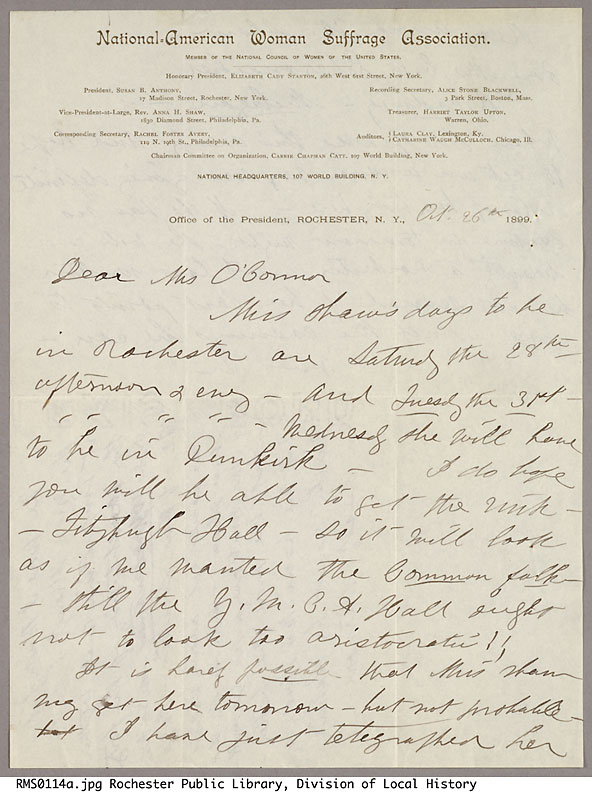 National-American Woman Suffrage Association.
MEMBER OF THE NATIONAL COUNCIL OF WOMEN OF THE UNITED STATES.
Honorary President, ELIZABETH CADY STANTON, 26th West 61st Street, New York.
President, SUSAN B. ANTHONY,
17 Madison Street, Rochester, New York.
Recording Secretary, ALICE STONE BLACKWELL,
3 Park Street, Boston, Mass.
Vice-President-at-Large, REV. ANNA H. SHAW,
1830 Diamond Street, Philadelphia, Pa.
Treasurer, HARRIET TAYLOR UPTON,
Warren, Ohio.
Corresponding Secretary, RACHEL FOSTER AVERY,
119 N. 19th St., Philadelphia, Pa.
Auditors, { LAURA CLAY, Lexington, Ky.
{ CATHARINE WAUGH McCULLOCH, Chicago, Ill.
Chairman Committee on Organization, CARRIE CHAPMAN CATT, 107 World Building, New York.
NATIONAL HEADQUARTERS, 107 WORLD BUILDING, N. Y.
Office of the President, ROCHESTER, N. Y., Oct. 26th 1899.
Dear Mrs O'Connor
Miss Shaw's days to be
in Rochester are Saturdy the 28th
afternoon & eveg - and Tuesdy the 31st -
" " " " - Wednesdy she will have
to be in Dunkirk - I do hope
you will be able to get the rink -
- Fitzhugh Hall - so it will look
as if we wanted the Common folk -
- still the Y. M. C. A. Hall ought
not to look too aristocratic!!
It is barely possible that Miss Shaw
may get here tomorrow - but not probable -
I have just telegraphed her
RMS0114a.jpg Rochester Public Library, Division of Local History